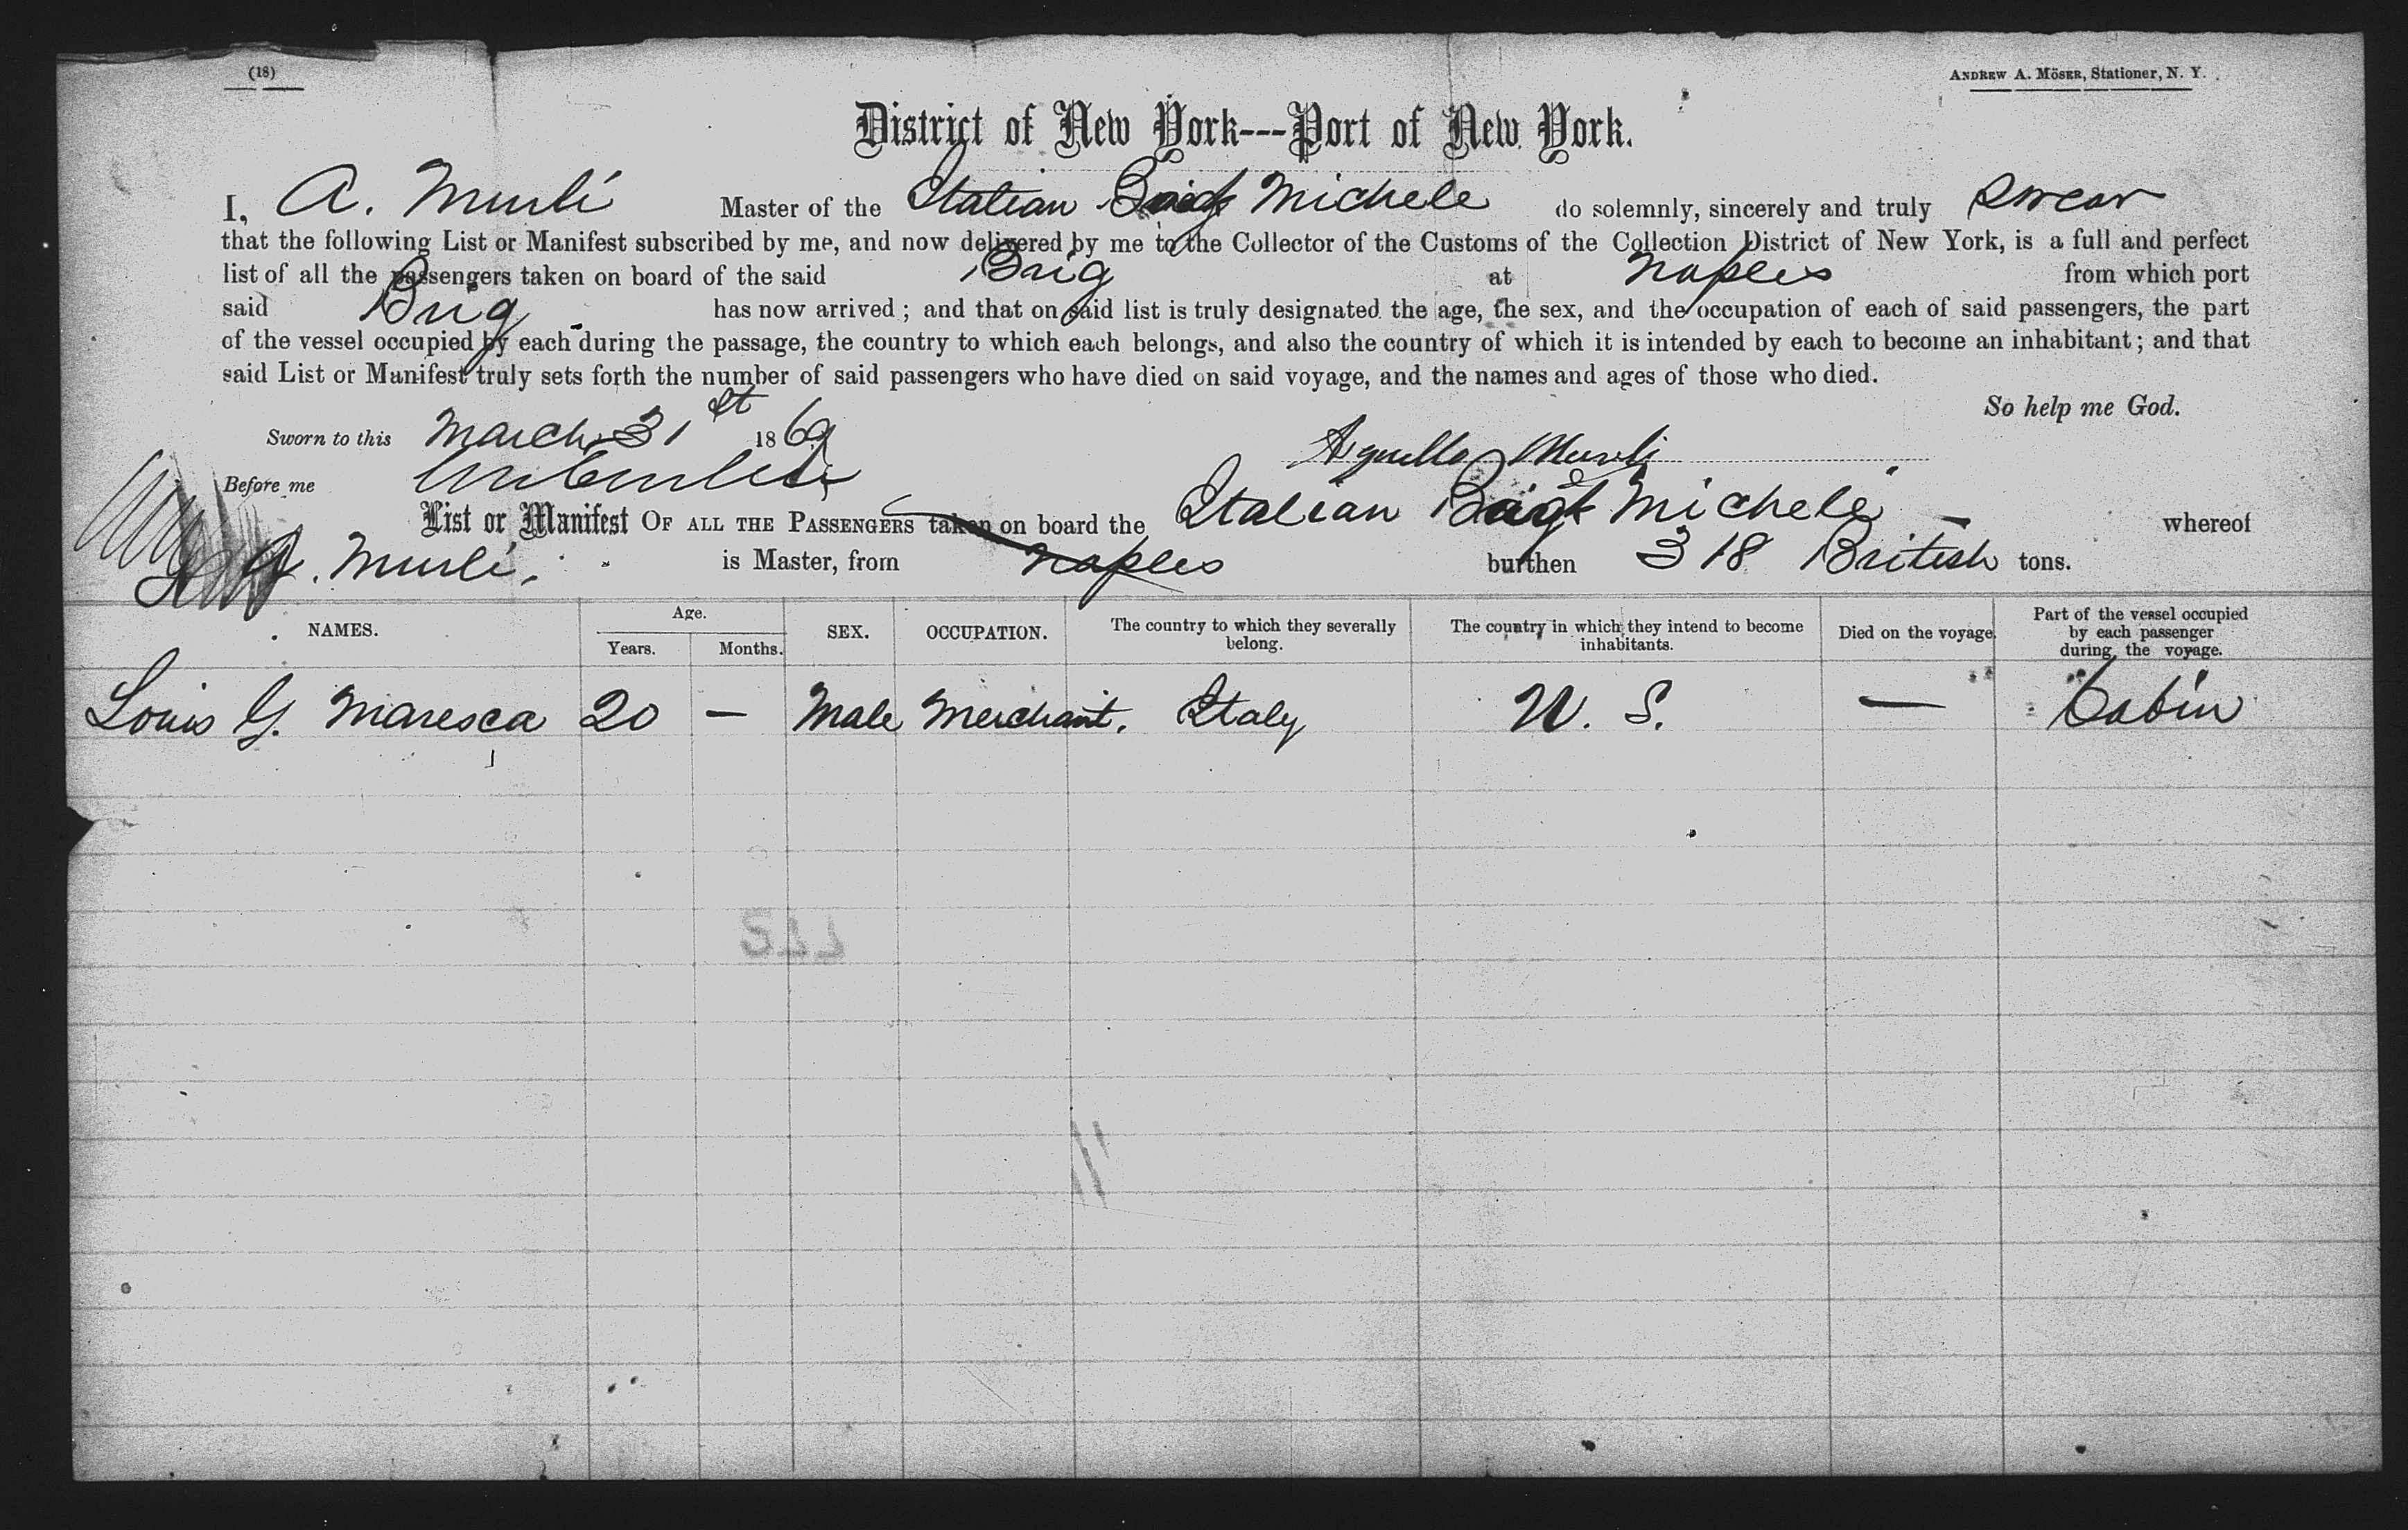 (18)
ANDREW A. MÖSER, Stationer, N. Y.
District of New York---Port of New York.
I, A. Murli Master of the Italian Brig Michele do solemnly, sincerely and truly swear
that the following List or Manifest subscribed by me, and now delivered by me to the Collector of the Customs of the Collection District of New York, is a full and perfect
list of all the passengers taken on board of the said Brig at Naples from which port
said Brig has now arrived; and that on said list is truly designated the age, the sex, and the occupation of each of said passengers, the part
of the vessel occupied by each during the passage, the country to which each belongs, and also the country of which it is intended by each to become an inhabitant; and that
said List or Manifest truly sets forth the number of said passengers who have died on said voyage, and the names and ages of those who died.
So help me God.
Sworn to this March 31st 1869
Murli
Before me
List or Manifest OF ALL THE PASSENGERS taken on board the Italian Brig Michele whereof
A. Murli. is Master, from Naples burthen 318 British tons.
NAMES. Age. Years. Months. SEX. OCCUPATION. The country to which they severally belong. The country in which they intend to become inhabitants. Died on the voyage. Part of the vessel occupied by each passenger during the voyage.
Louis G. Maresca 20 — Male Merchant. Italy U. S. — Cabin